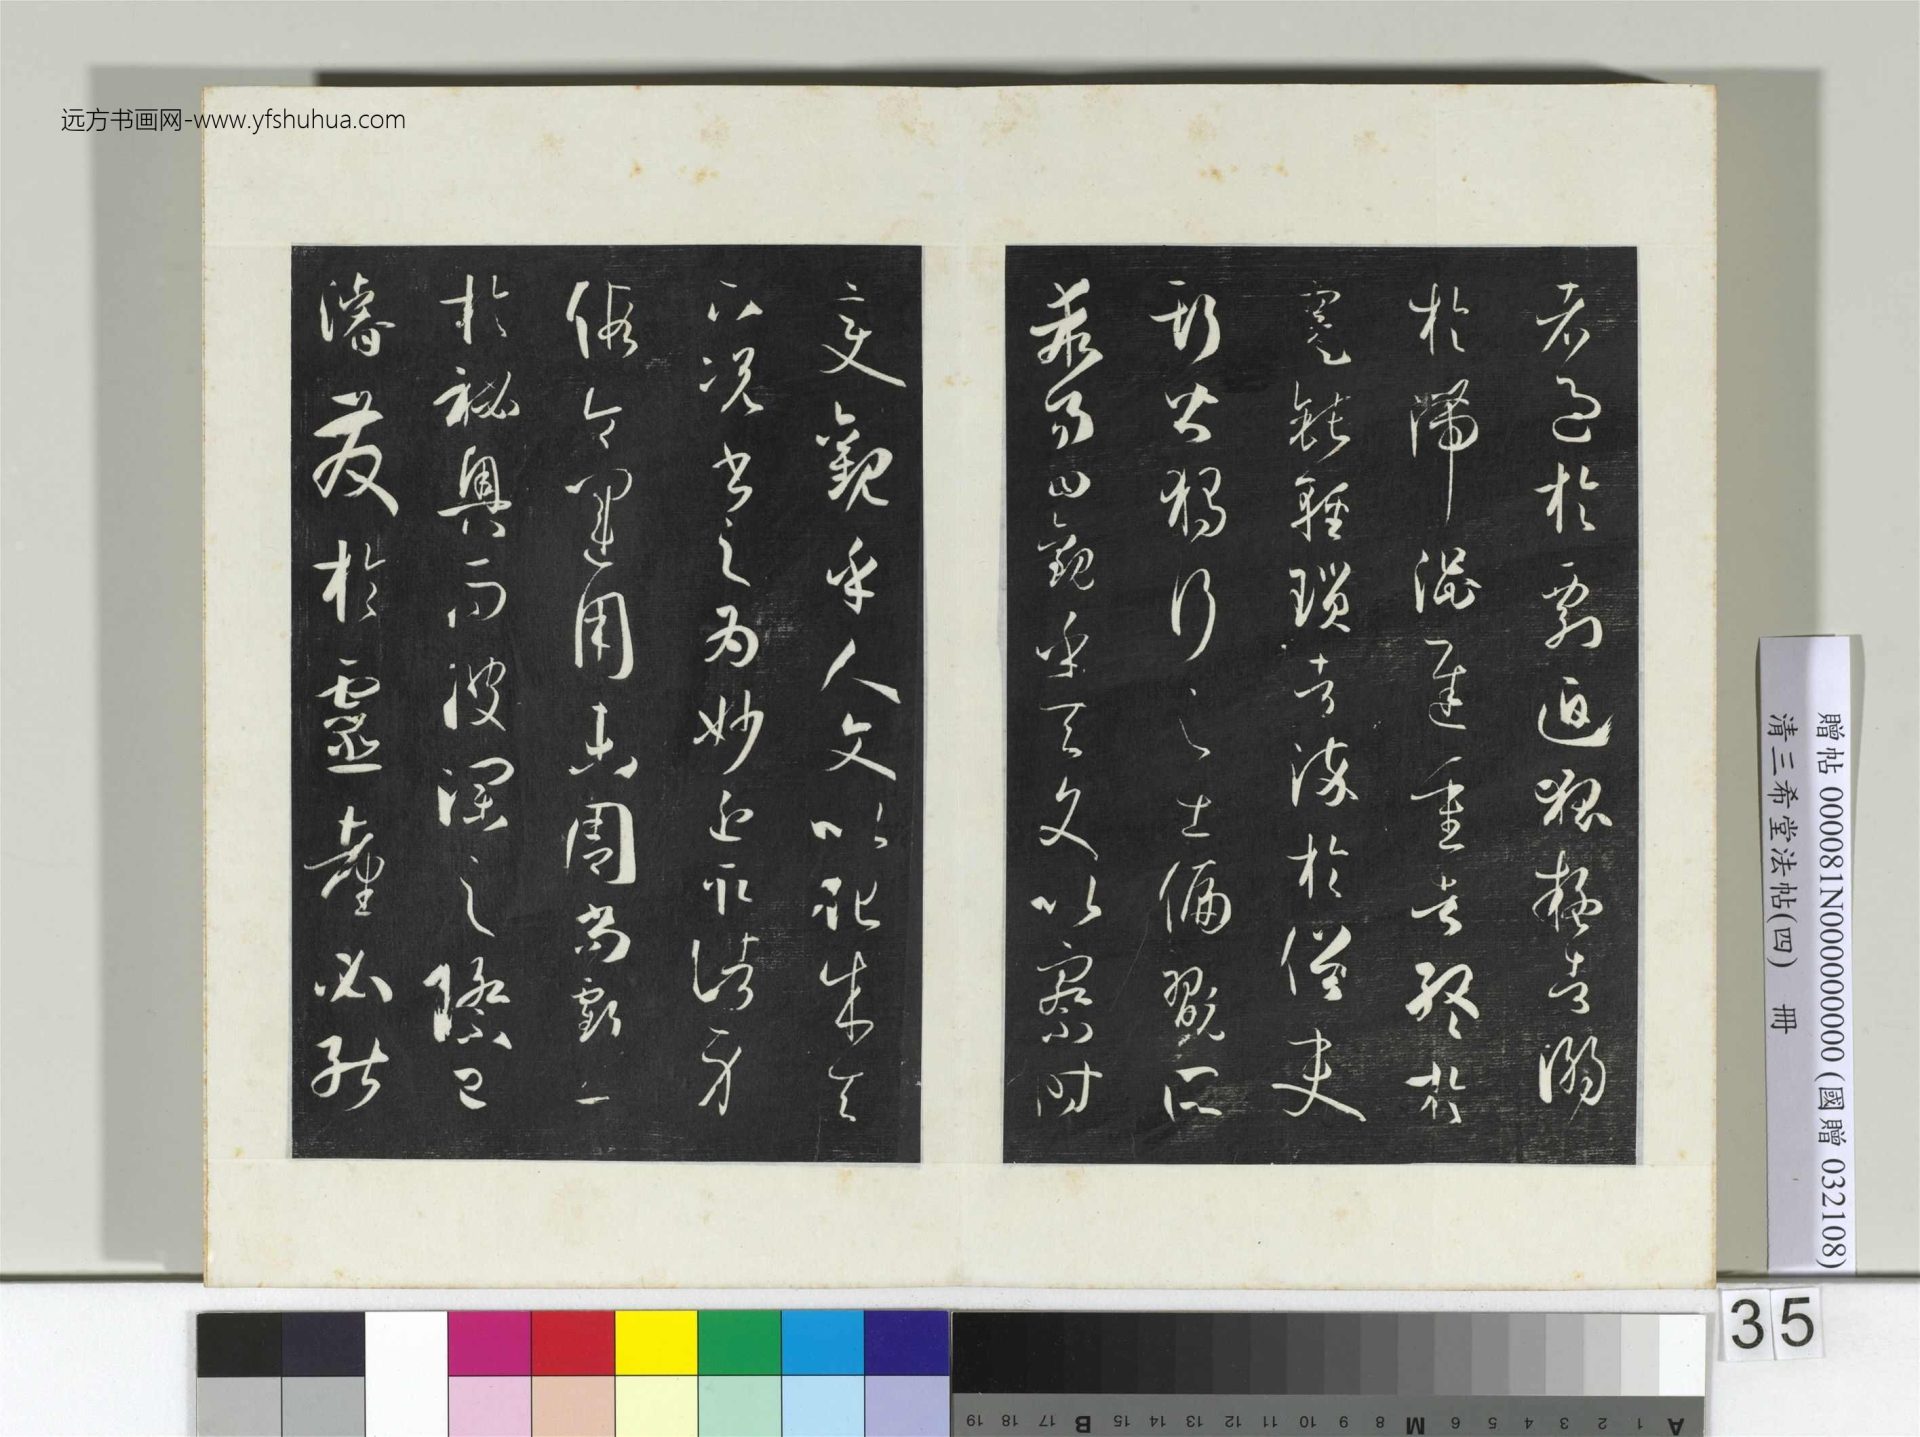 远方书画网-www.yfshuhua.com
者過於剽迫狐疑者溺
於滯澀遲重者終於
蹇鈍輕瑣者淬於俗吏
斯皆獨行之士偏翫所
乖易曰觀乎天文以察時
變觀乎人文以化成天
下況書之為妙近取諸身
假令運用未周尚虧工
於祕奧而波瀾之際已
濬發於靈臺必能
贈帖 000081N000000000 (國贈 032108)
清三希堂法帖(四) 冊
35
A 1 2 3 4 5 6 M 8 9 10 11 12 13 14 15 B 17 18 19